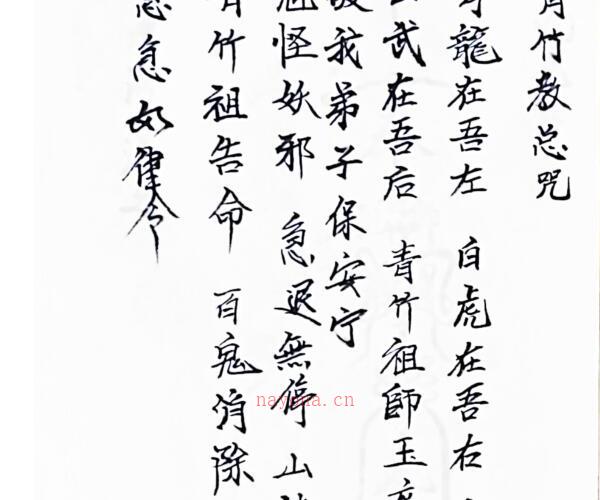 青竹教总咒
龍在吾左 白虎在吾右
武在吾后 青竹祖師玉
我弟子保安宁
怪妖邪 急退無停 山
竹祖告命 百鬼消除
急急如律令
nayona.cn